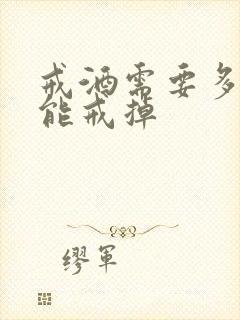 戒酒需要多
能戒掉
缪军